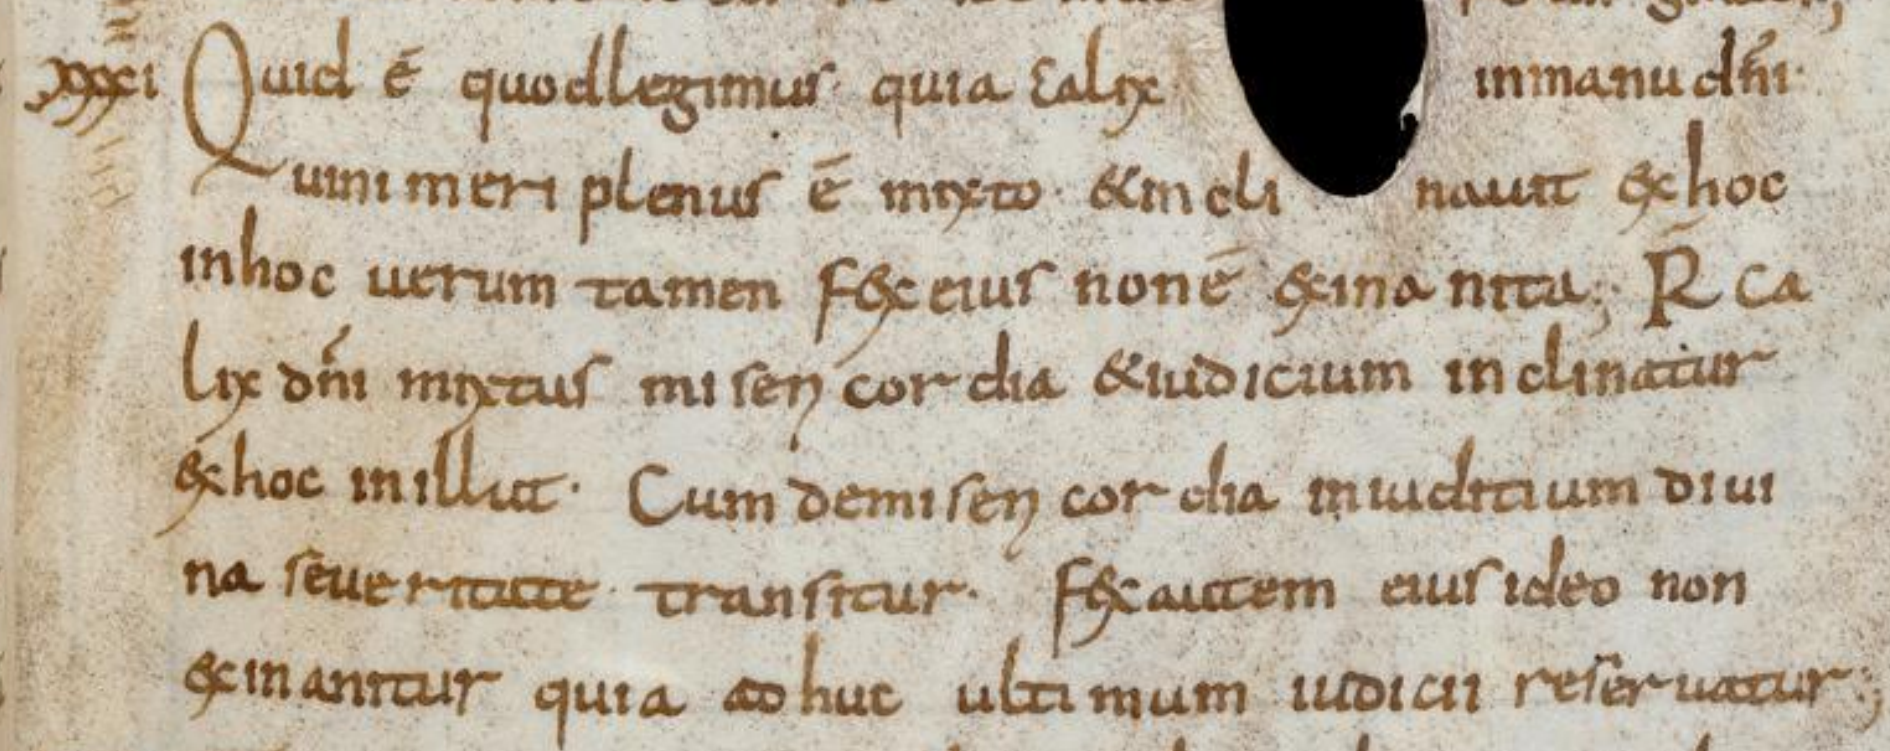 xxxxi Quid ē quod legimus quia calix in manu dñi
uini meri plenus ē mixto· & in cli nauit ex hoc
in hoc uerum tamen fex eius non ē exina nita; R̄ ca
lix dñi mixtus miseri cor dia & iudicium in clinatur
ex hoc in illut· Cum de miseri cor dia in iuditium diui
na seueritate transitur· fex autem eius ideo non
exinanitur quia ad huc ultimum iudicii reseruatur;